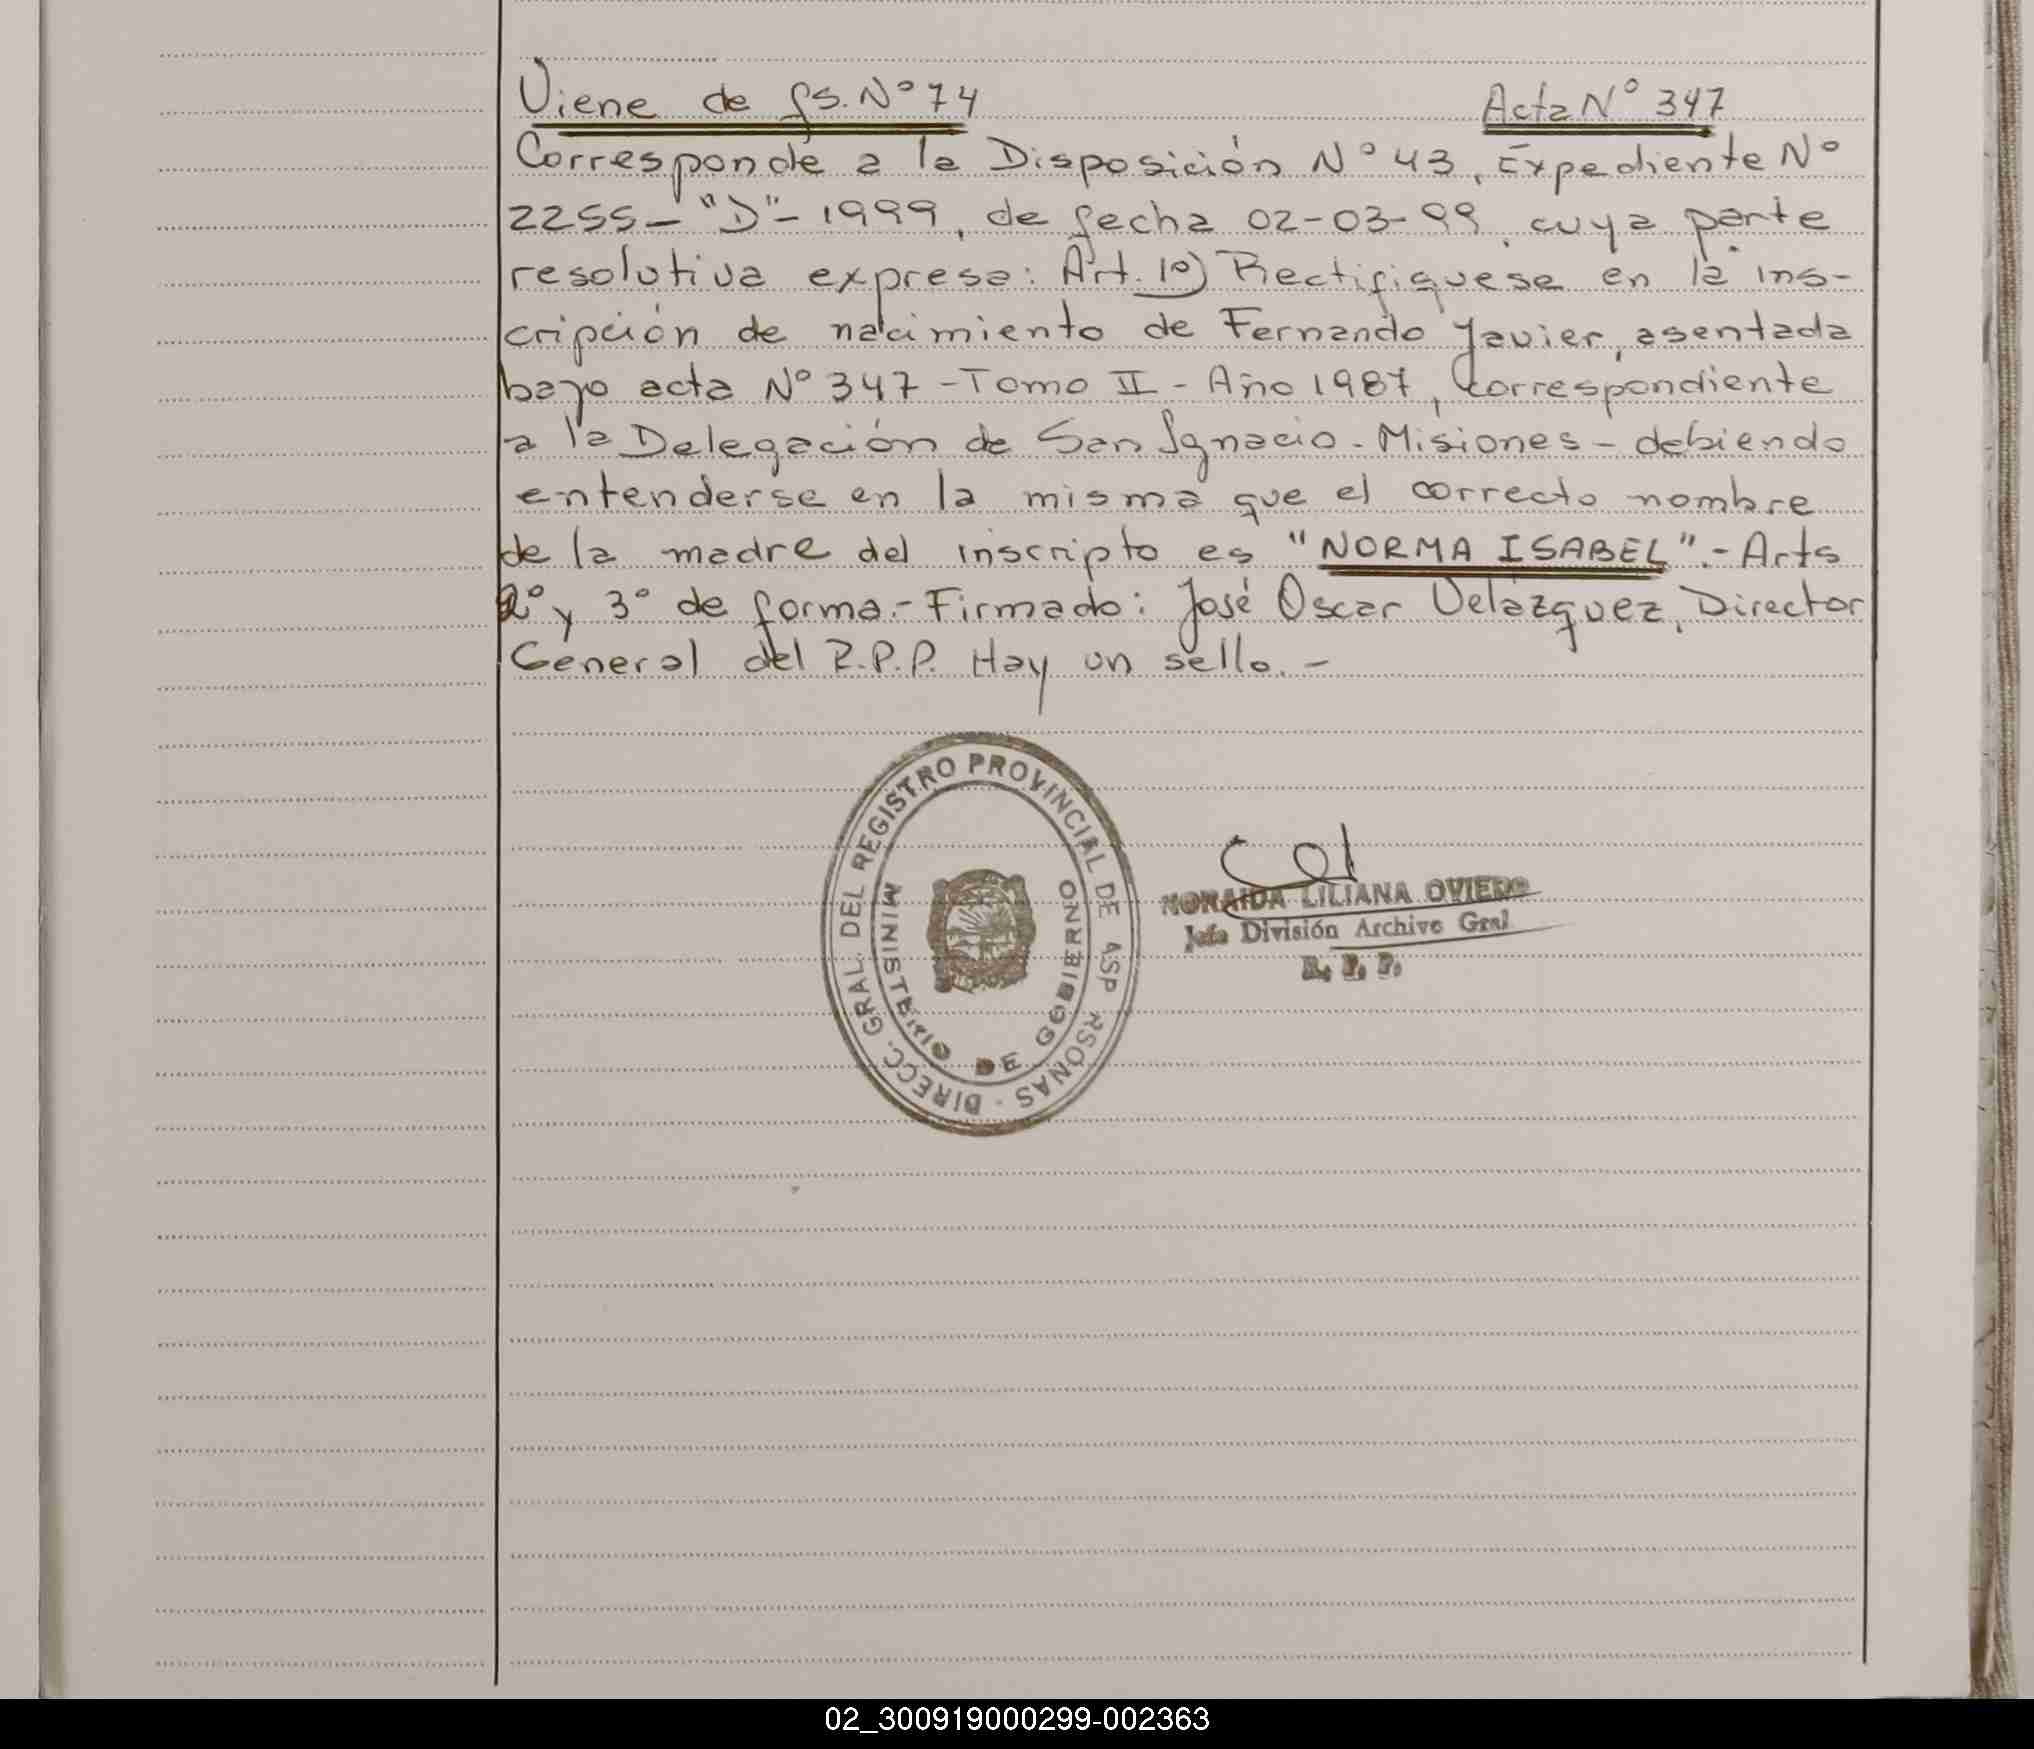 Viene de fs. Nº 74 Acta Nº 347
Corresponde a la Disposición Nº 43, Expediente Nº
2255-"D"-1999, de fecha 02-03-99, cuya parte
resolutiva expresa: Art. 1º) Rectifíquese en la ins-
cripción de nacimiento de Fernando Javier, asentada
bajo acta Nº 347 - Tomo II - Año 1987, correspondiente
a la Delegación de San Ignacio - Misiones - debiendo
entenderse en la misma que el correcto nombre
de la madre del inscripto es "NORMA ISABEL".- Arts
2º y 3º de forma.- Firmado: José Oscar Velázquez, Director
General del R.P.P. Hay un sello.-
DIRECC. GRAL. DEL REGISTRO PROVINCIAL DE ASP RSONAS
MINISTERIO DE GOBIERNO
LILIANA OVIEDO
Jefa División Archivo Gral
R. P. P.
02_300919000299-002363